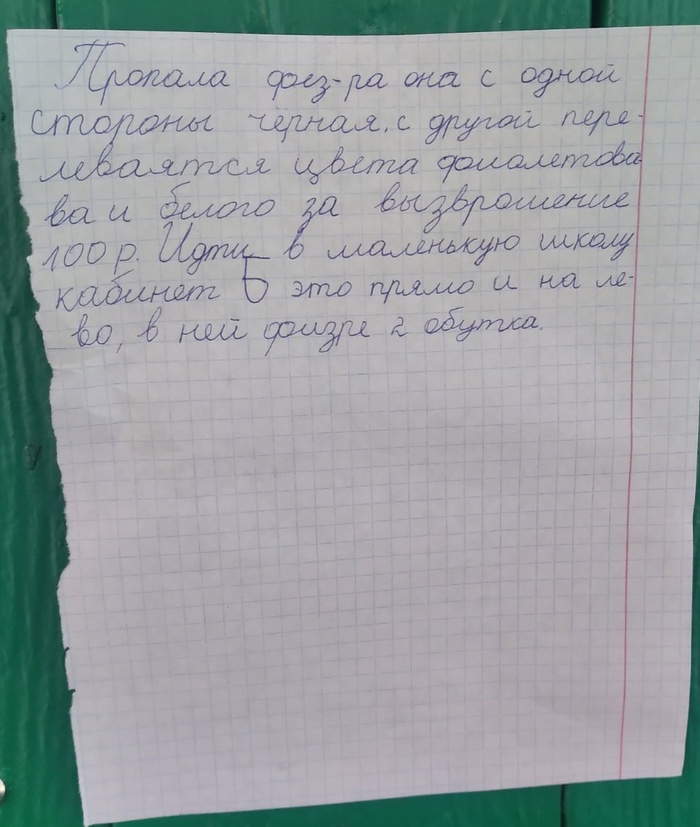 Пропала физ-ра она с одной
стороны чёрная, с другой пере-
леваятся цвета фиолетова
ва и белого за вызврошение
100 р. Идти в маленькую школу
кабинет 6 это прямо и на ле-
во, в ней физре 2 обутка.